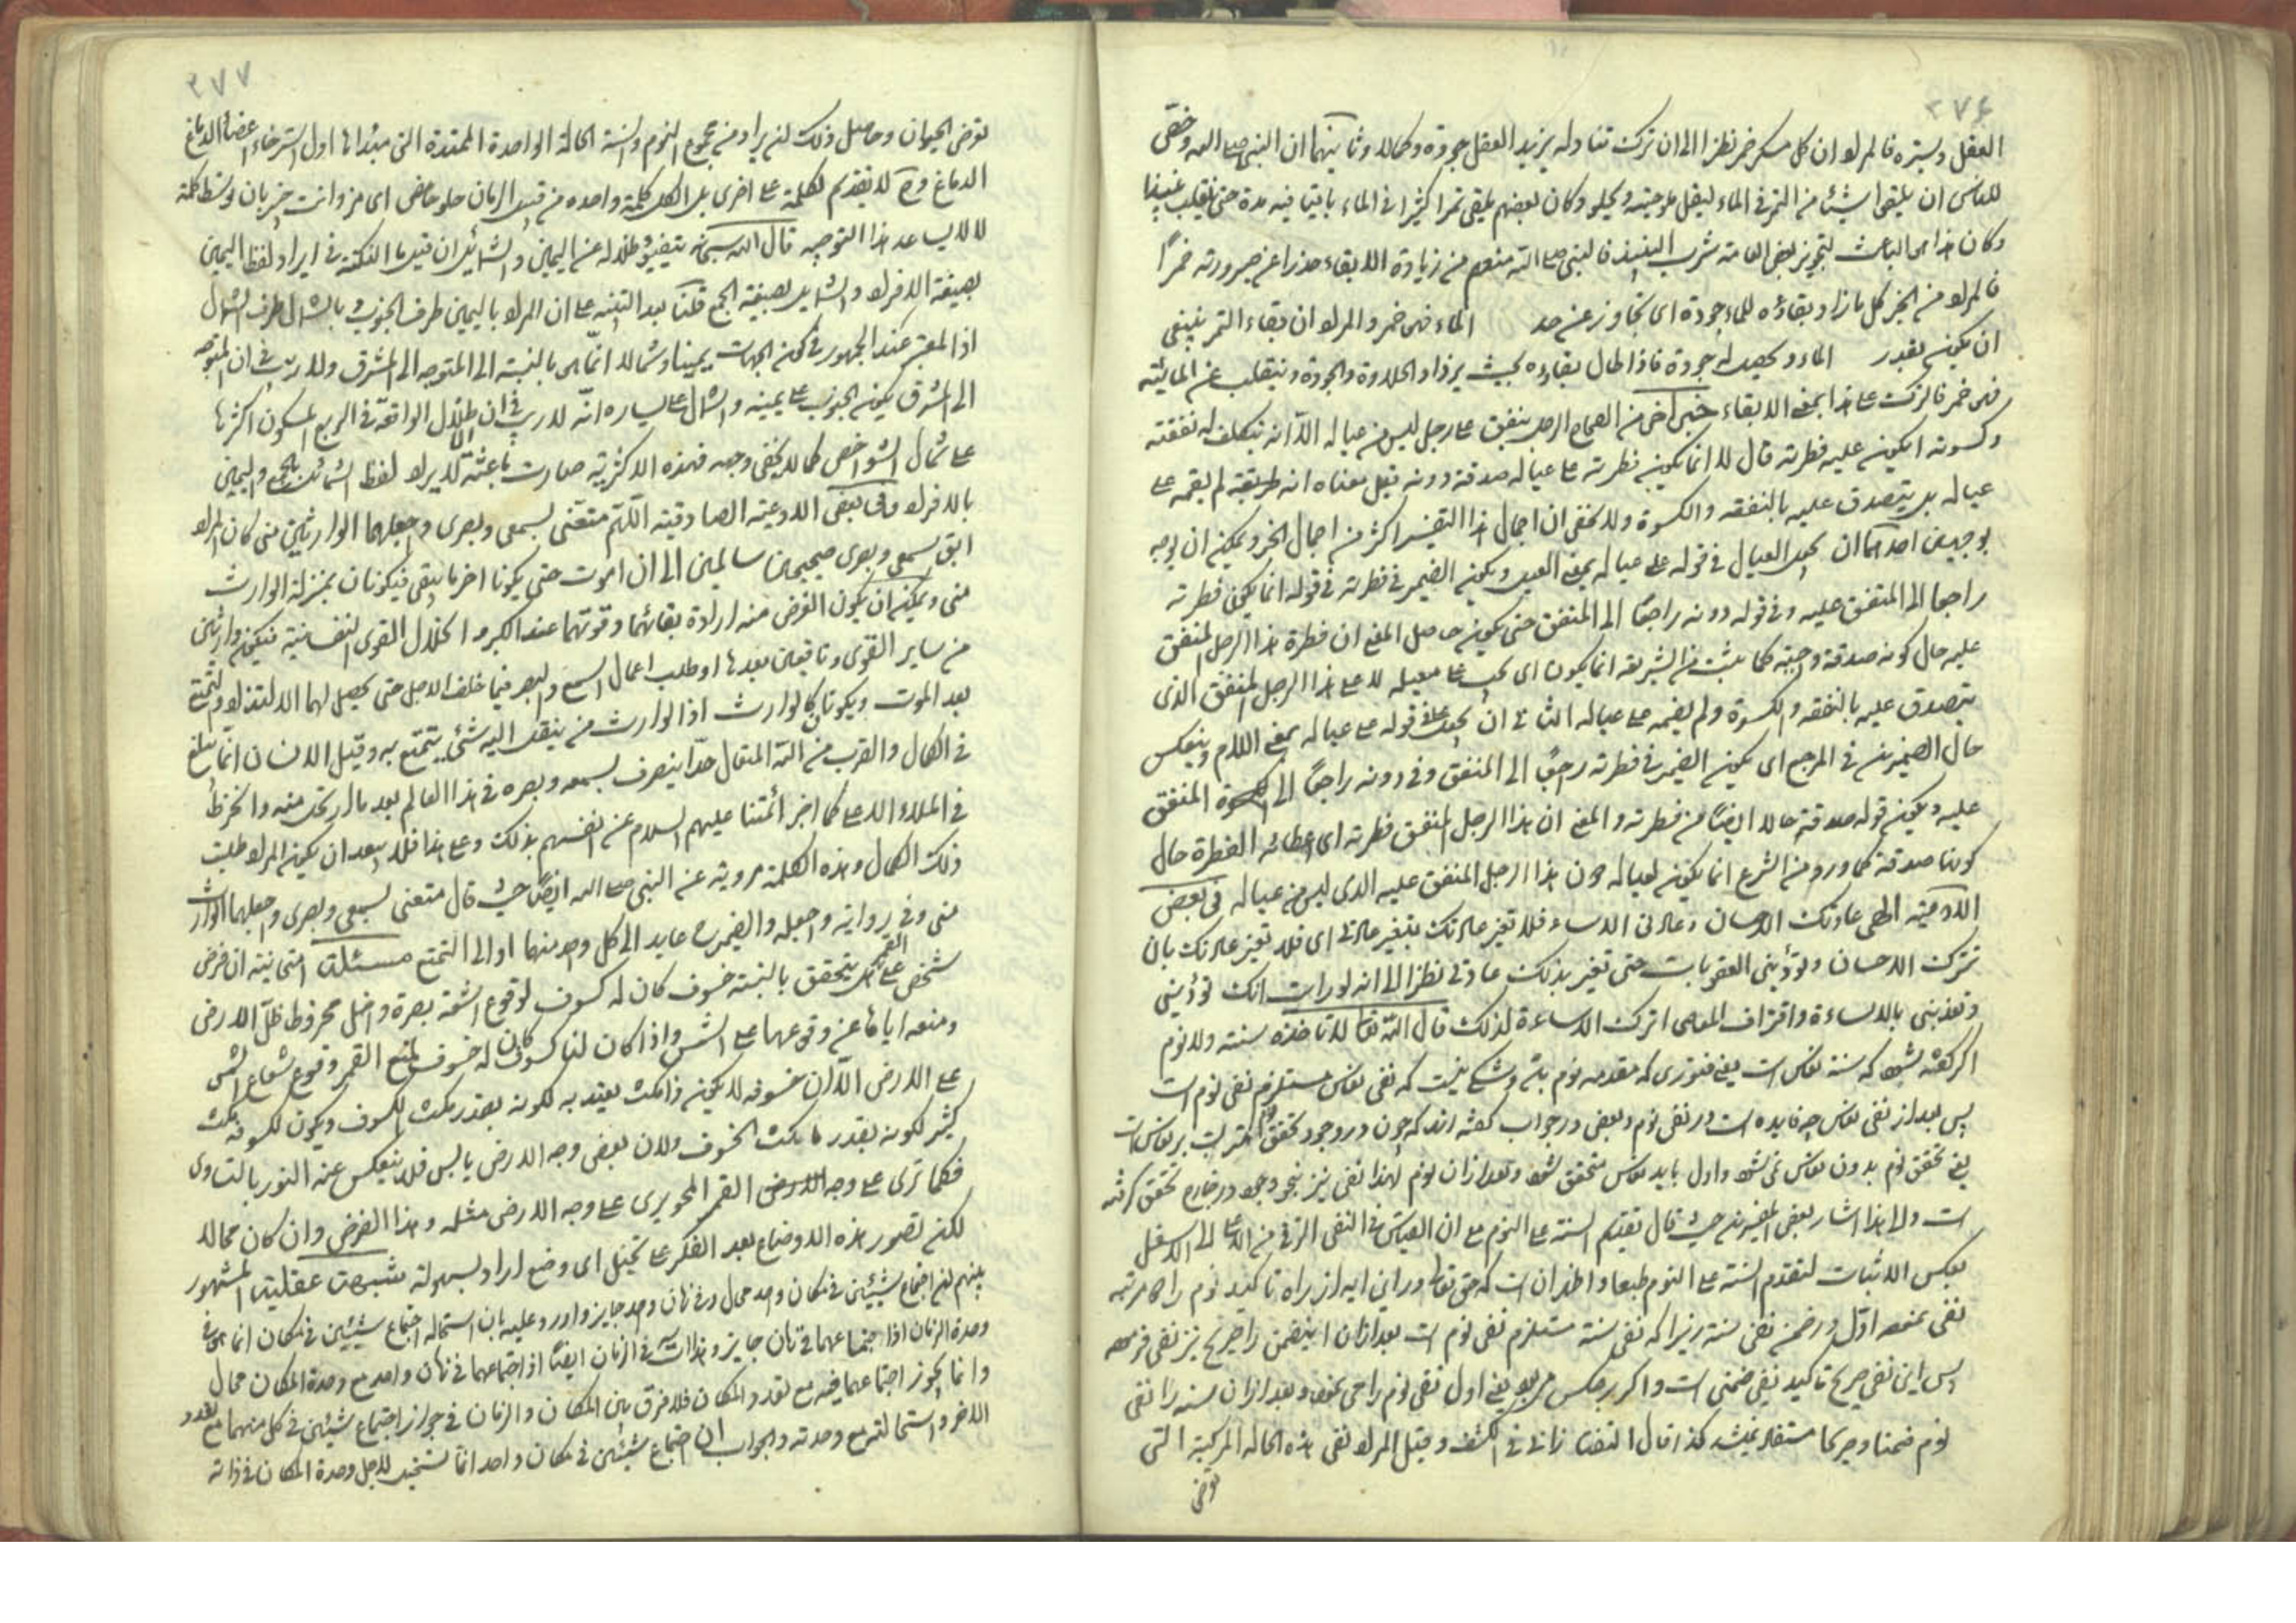 ٣٧٤
العقل ويستره فالمراد ان كل مسكر خمر نظرا الى ان ترك تناوله يزيد العقل جودة وكماله وثانيهما ان النبى صلى الله رخص
للناس ان يلقى شيئا من التمر فى الماء ليقل ملوحته ويحلو وكان بعضهم يلقى تمرا كثيرا فى الماء باقيا فيه مدة حتى ينقلب نبيذا
وكان هذا هو الباعث لتجويز بعض العامة شرب النبيذ فالنبى صلى الله منعهم من زيادة الابقاء حذرا عن صيرورته خمرًا
فالمراد من الخبر كل ما زاد بقاؤه للماء جودة اى تجاوز عن حد الماء فهى خمر والمراد ان بقاء التمر ينبغى
ان يكون بقدر الماء ويحصل له جودة فاذا طال بقاؤه بحيث يزداد الحلاوة والجودة وينقلب عن المائية
فهى خمر فالترك على هذا بمعنى الابقاء خبر اخر من الصحاح الرجل ينفق على رجل ليس من عياله الّا انه يتكلف له نفقته
وكسوته ايكون عليه فطرته قال لا انما يكون فطرته على عياله صدقة دونه قيل معناه انه طريقته لم يقمه على
عياله بل يتصدق عليه بالنفقه والكسوة ولا يخفى ان اجمال هذا التفسير اكثر من اجمال الخبر ويمكن ان يوجه
بوجهين احدهما ان يحمل العيال فى قوله على عياله بمعنى المعيل ويكون الضمير فى فطرته فى قوله انما يكون فطرته
راجعا الى المنفق عليه وفى قوله دونه راجعًا الى المنفق حتى يكون حاصل المعنى ان فطرة هذا الرجل المنفق
عليه حال كونه صدقة واجبة كما يثبت من الشريعة انما يكون اى يجب على معيله لا على هذا الرجل المنفق الذى
يتصدق عليه بالنفقه والكسوة ولم يضمه على عياله الثانى ان يجعل على فى قوله على عياله بمعنى اللام وينعكس
حال الضميرين فى المرجع اى يكون الضمير فى فطرته راجعًا الى المنفق وفى دونه راجعًا الى المنفق
عليه ويكون قوله صدقة حالا ايضًا من فطرته والمعنى ان هذا الرجل المنفق فطرته اى اعطائه الفطرة حال
كونها صدقة كما ورد من الشرع انما يكون لعياله دون هذا الرجل المنفق عليه الذى ليس من عياله فى بعض
الادعية الهى عادتك الاحسان وعادتى الاساءة فلا تغير عادتك بتغير عادتى اى فلا تغير عادتك بان
تترك الاحسان وتؤدّبنى العقوبات حتى تغير بذلك عادتى نظرا الى انه لو رايت انك تؤذينى
وتعذبنى بالاساءة واقتراف المعاصى اترك الاساءة لذلك قال الله تعالى لا تاخذه سنة ولا نوم
اكر كفته شود كه سنة نعاس است يعنى فتورى كه مقدمه نوم باشد وشكى نيست كه نفى نعاس مستلزم نفى نوم است
پس بعد از نفى نعاس چه فايده است در نفى نوم وبعض در جواب كفته اند كه چون در وجود تحقق نوم مترتب بر نعاس است
يعنى تحقق نوم بدون نعاس نمى شود واول بايد نعاس متحقق شود وبعد از ان نوم لهذا نفى نيز بنحو وجود در خارج تحقق كرفته
است والى هذا اشار بعض المفسرين حيث قال تقديم السنة على النوم مع ان القياس فى النفى الترقى من الاعلى الى الاسفل
بعكس الاثبات لتقدم السنة على النوم طبعا واظهر ان است كه حق تعالى در اين ايه از راه تاكيد نوم را دو مرتبه
نفى نموده اوّل در ضمن نفى سنة زيرا كه نفى سنة مستلزم نفى نوم است بعد از ان اينضمن را صريح نيز نفى فرموده
پس اين نفى صريح تاكيد نفى ضمنى است واكر برعكس مى بود يعنى اول نفى نوم را مى نمود وبعد از ان سنه را نفى
نوم ضمنا وصريحا مستفاد نميشد كذا قال التفتازانى فى الكشف وقيل المراد نفى هذه الحاله المركبة التى
توض
٣٧٧
توض الحيوان وحاصل ذلك لن يراد من مجموع النوم والسنة الحالة الواحدة الممتدة التى مبدائها اول استرخاء اعضاء الدماغ
الدماغ وح لا تقديم لكلمة على اخرى بل الكل كلمة واحده من قبيل الرمان حلو حامض اى مز وانت خبير بان توسّط كلمة
لا لا يساعد هذا التوجيه قال الله سبحانه يتفيؤ ظلاله عن اليمين والشمائل ان قيل ما النكتة فى ايراد لفظ اليمين
بصيغة الافراد والشمايل بصيغة الجمع قلنا بعد التنبيه على ان المراد باليمين طرف الجنوب وبالشمال طرف الشمال
اذ المعتبر عند الجمهور فى كون الجهات يمينا وشمالا انّما هى بالنسبة الى المتوجه الى المشرق ولا ريب فى ان المتوجه
الى المشرق يكون الجنوب على يمينه والشمال على يساره انّه لا ريب فى ان ظلال الواقعة فى الربع المسكون اكثرها
على شمال الشواخص كما لا يخفى وجهه فهذه الاكثرية صارت باعثة لايراد لفظ الشمائل بالجمع واليمين
بالافراد وفى بعض الادعية الصادقية اللّهم متّعنى بسمعى وبصرى واجعلهما الوارثين منى كان المراد
ابق سمعى وبصرى صحيحين سالمين الى ان اموت حتى يكونا اخر ما يبقى فيكونان بمنزلة الوارث
منى ويمكن ان يكون الغرض منه ارادة بقائهما وقوتهما عند الكبر وانحلال القوى النفسانية فيكونا وارثين
من ساير القوى وباقيين بعدها او طلب اعمال السمع والبصر فيما خلف الاجل حتى يحصل لهما الالتذاذ والتمتع
بعد الموت ويكونان كالوارث اذ الوارث من ينقل اليه شئ يتمتع به وقيل الانسان انّما يبلغ
فى الكمال والقرب من الله المتعال حدّا يتصرف بسمعه وبصره فى هذا العالم بعد ما ارتحل منه وانخرط
فى الملاء الاعلى كما اخبر ائمّتنا عليهم السلام عن انفسهم بذلك وعلى هذا فلا يبعد ان يكون المراد طلب
ذلك الكمال وهذه الكلمة مروية عن النبى صلى الله ايضًا حيث قال متعنى بسمعى وبصرى واجعلهما الوارث
منى وفى رواية واجعله والضمير ح عايد الى كل واحد منهما او الى التمتع مسئلة امتحانية ان فرض
شخص على القمر يتحقق بالنسبة خسوف كان له كسوف لوقوع اشعة بصره داخل مخروط ظلّ الارض
ومنعه اياها عن وقوعها على الشمس واذا كان لنا كسوف كان له خسوف لمنع القمر وقوع شعاع الشمس
على الارض الّا ان خسوفه لا يكون ذا مكث يعتد به لكونه بقدر مكث الكسوف ويكون لكسوفه مكث
كثير لكونه بقدر مكث الخسوف ولان بعض وجه الارض يابس فلا ينعكس عنه النور بالتساوى
فكما ترى على وجه القمر المحو يرى على وجه الارض مثله وهذا الفرض وان كان محالا
لكن تصور هذه الاوضاع بعد الفكر على تخيل اى وضع اراد بسهولة شبهة عقلية المشهور
بينهم لن اجتماع شيئين فى مكان واحد محال وفى زمان واحد جايز واورد عليه بان استحالة اجتماع شيئين فى مكان انما هى فى
وحدة الزمان اذ اجتماعهما فى زمان جايز وهذا ات فى الزمان ايضًا اذ اجتماعهما فى زمان واحد مع وحدة المكان محال
وانما يجوز اجتماعهما فيه مع تعدد المكان فلا فرق بين المكان والزمان فى جواز اجتماع شيئين فى كل منهما مع تعدد
الاخر واستحالته مع وحدته والجواب ان اجتماع شيئين فى مكان واحد انما يستحيل لاجل وحدة المكان فى ذاته